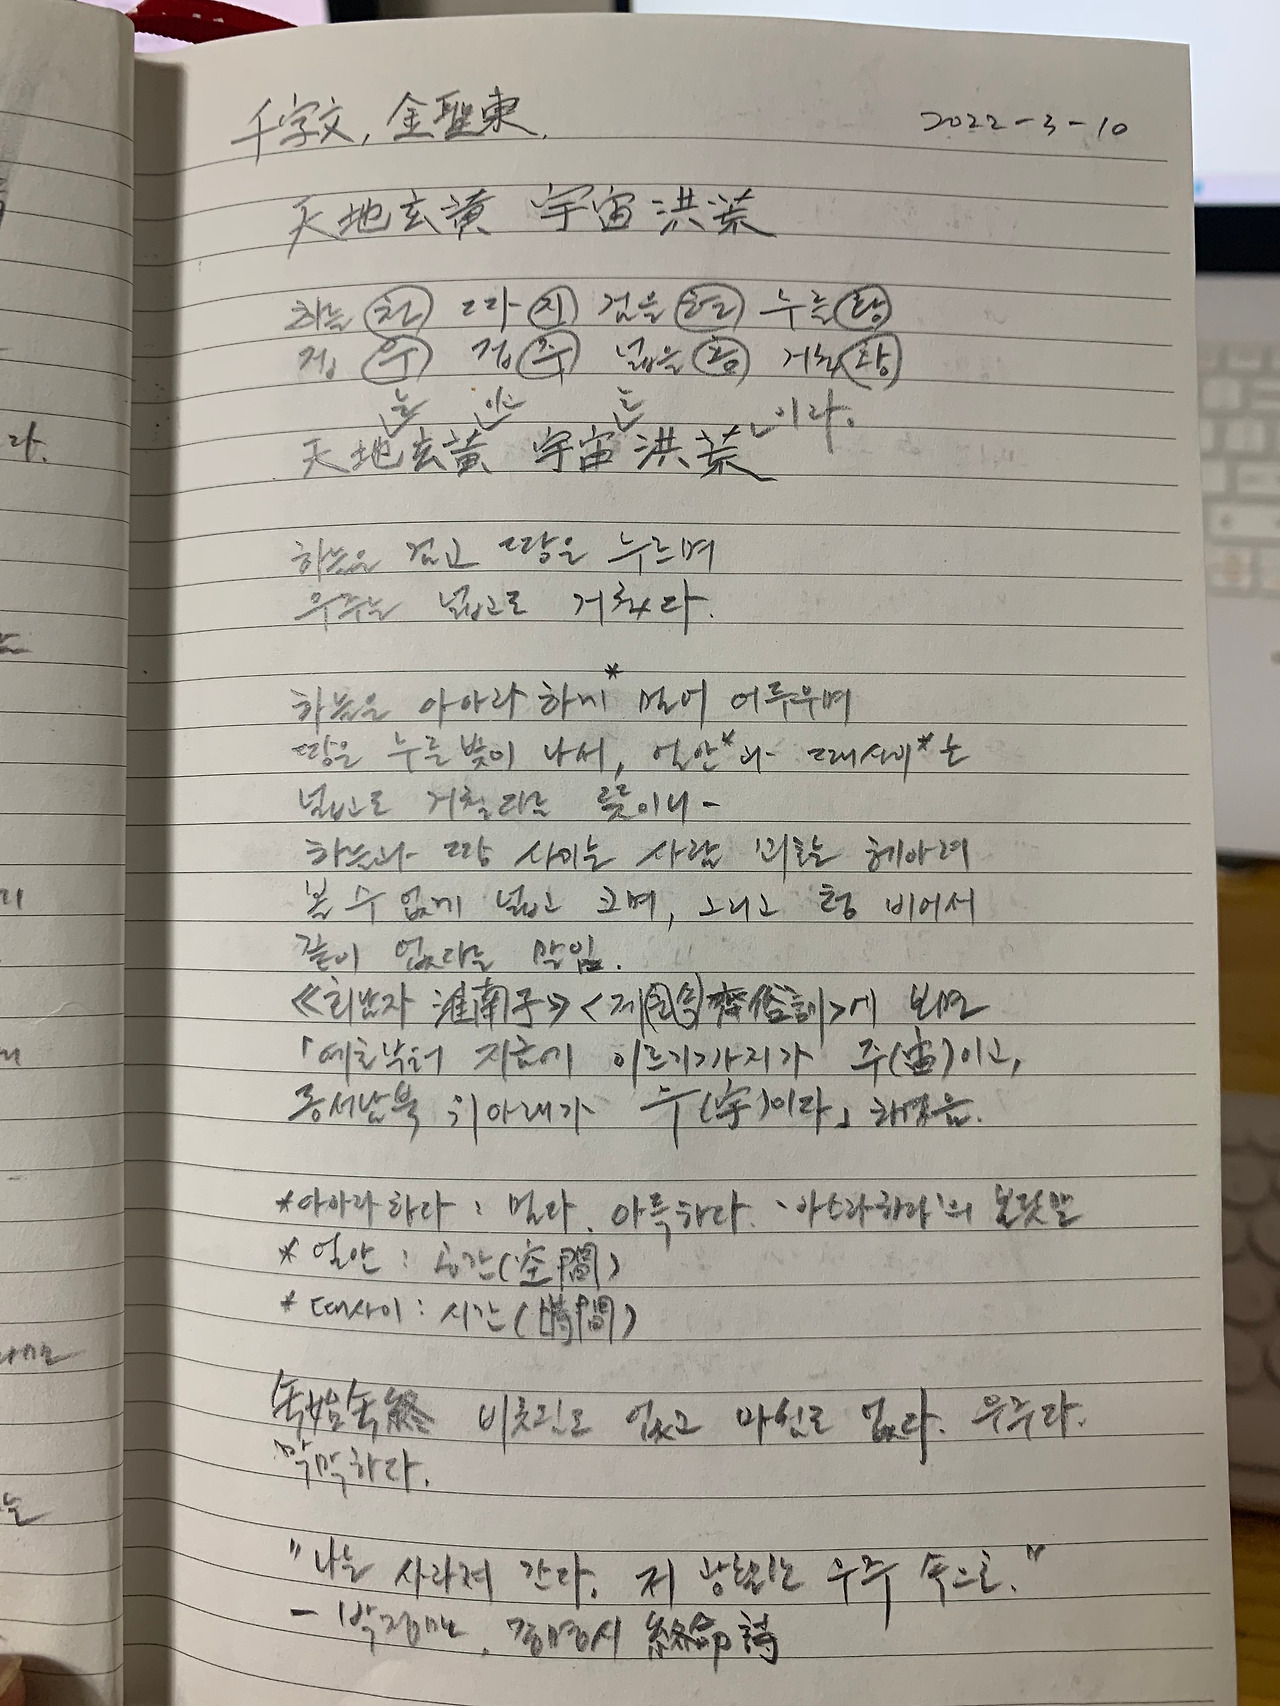 千字文, 金聖東.
2022-3-10
天地玄黃 宇宙洪荒
하늘 천 따 지 검을 현 누를 황
집 우 집 주 넓을 홍 거칠 황
는 는 이라.
天地玄黃 宇宙洪荒
하늘은 검고 땅은 누르며
우주는 넓고도 거칠다.
하늘은 아아라하게* 멀어 어두우며
땅은 누른빛이 나서, 얼안*과 때사이*는
넓고도 거칠다는 뜻이니-
하늘과 땅 사이는 사람 꾀로는 헤아려
볼 수 없게 넓고 크며, 그리고 텅 비어서
끝이 없다는 말임.
《회남자 淮南子》<제속훈 齊俗訓>에 보면
「예로부터 지금에 이르기까지가 주(宙)이고,
동서남북 위아래가 우(宇)이라」하였음.
*아아라하다 : 멀다. 아득하다. '아스라하다'의 본딧말
* 얼안 : 공간(空間)
* 때사이 : 시간(時間)
비롯됨도 없고 마침도 없다. 우주다.
막막하다.
"나는 사라져 간다. 저 광활한 우주 속으로."
- 박정만, 종명시 終命詩
라.